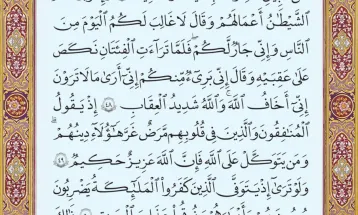 الشَّيْطَٰنُ أَعْمَٰلَهُمْ وَقَالَ لَا غَالِبَ لَكُمُ ٱلْيَوْمَ مِنَ
ٱلنَّاسِ وَإِنِّي جَارٌ لَّكُمْ ۖ فَلَمَّا تَرَآءَتِ ٱلْفِئَتَانِ نَكَصَ
عَلَىٰ عَقِبَيْهِ وَقَالَ إِنِّي بَرِيٓءٌ مِّنكُمْ إِنِّيٓ أَرَىٰ مَا لَا تَرَوْنَ
إِنِّيٓ أَخَافُ ٱللَّهَ ۚ وَٱللَّهُ شَدِيدُ ٱلْعِقَابِ ٤٨ إِذْ يَقُولُ
ٱلْمُنَٰفِقُونَ وَٱلَّذِينَ فِي قُلُوبِهِم مَّرَضٌ غَرَّ هَٰٓؤُلَآءِ دِينُهُمْ ۗ
وَمَن يَتَوَكَّلْ عَلَى ٱللَّهِ فَإِنَّ ٱللَّهَ عَزِيزٌ حَكِيمٌ ٤٩
وَلَوْ تَرَىٰٓ إِذْ يَتَوَفَّى ٱلَّذِينَ كَفَرُوا۟ ۙ ٱلْمَلَٰٓئِكَةُ يَضْرِبُونَ